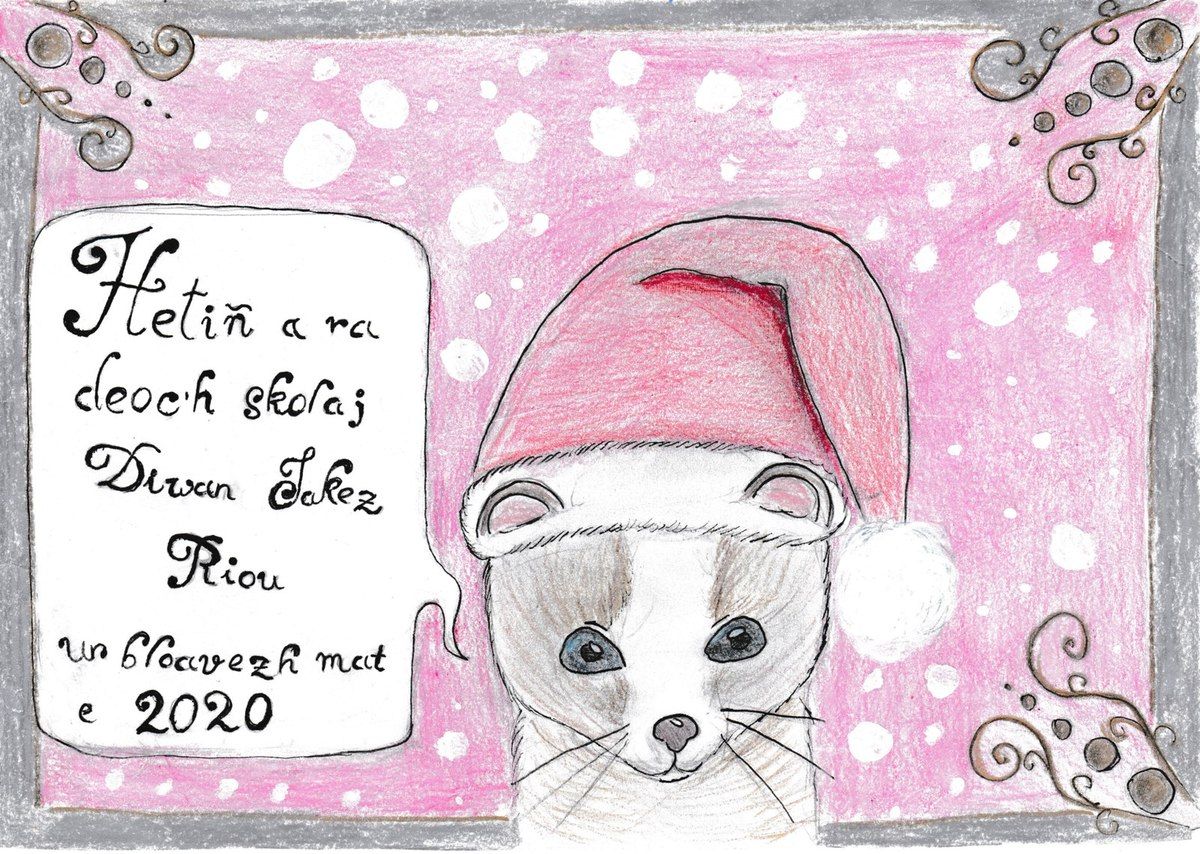 Hetiñ a ra
deoc'h skolaj
Diwan Jakez
Riou
ur bloavezh mat
e 2020